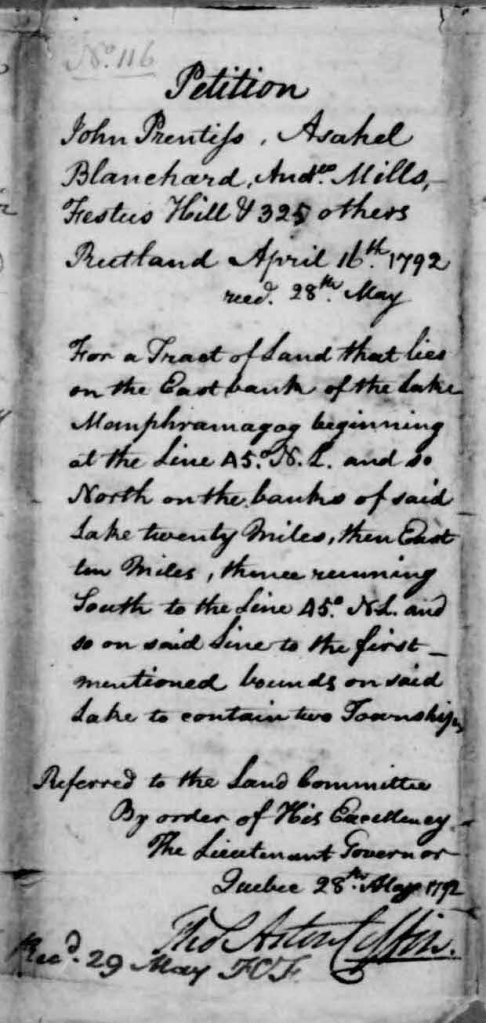 No. 116
Petition
John Prentiss, Asahel
Blanchard, Andw. Mills,
Festus Hill & 325 others
Rutland April 16th. 1792
recd. 28th. May
For a Tract of Land that lies
on the East bank of the Lake
Mamphramagog beginning
at the Line 45° N. L. and so
North on the banks of said
Lake twenty Miles, then East
ten Miles, thence running
South to the Line 45° N L. and
so on said Line to the first
mentioned bounds on said
Lake to contain two Townships
Referred to the Land Committee
By order of His Excellency
The Lieutenant Governor
Quebec 28th. May 1792
Thos Aston Coffin.
Recd. 29 May